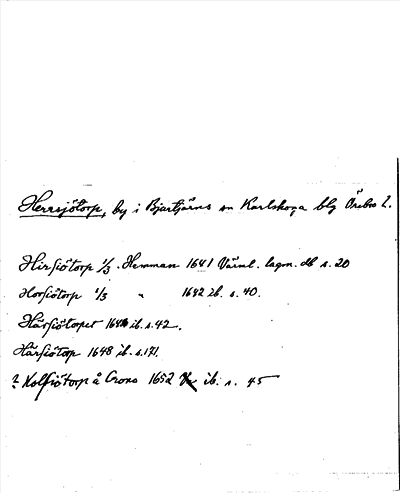 Herrsjötorp, by i Bjurtjärns sn Karlskoga blg Örebro l.
Hirsiötorp 1/3 Hemman 1641 Värml. lagm. db s. 20
Horsiötorp 1/3 " 1642 ib. s. 40.
Härsiötorpet ib. s. 42.
Härsiötorp 1648 ib. s. 171.
? Kolsiötorp å Crono 1652 ib. s. 45